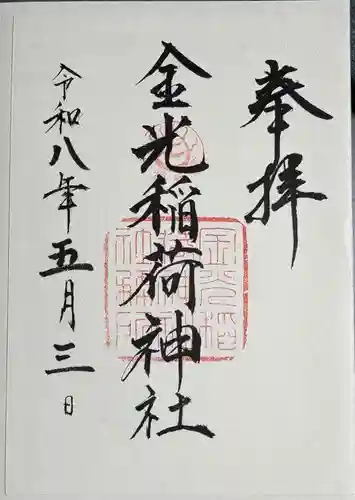 奉拝
金光稲荷神社
令和八年五月三日